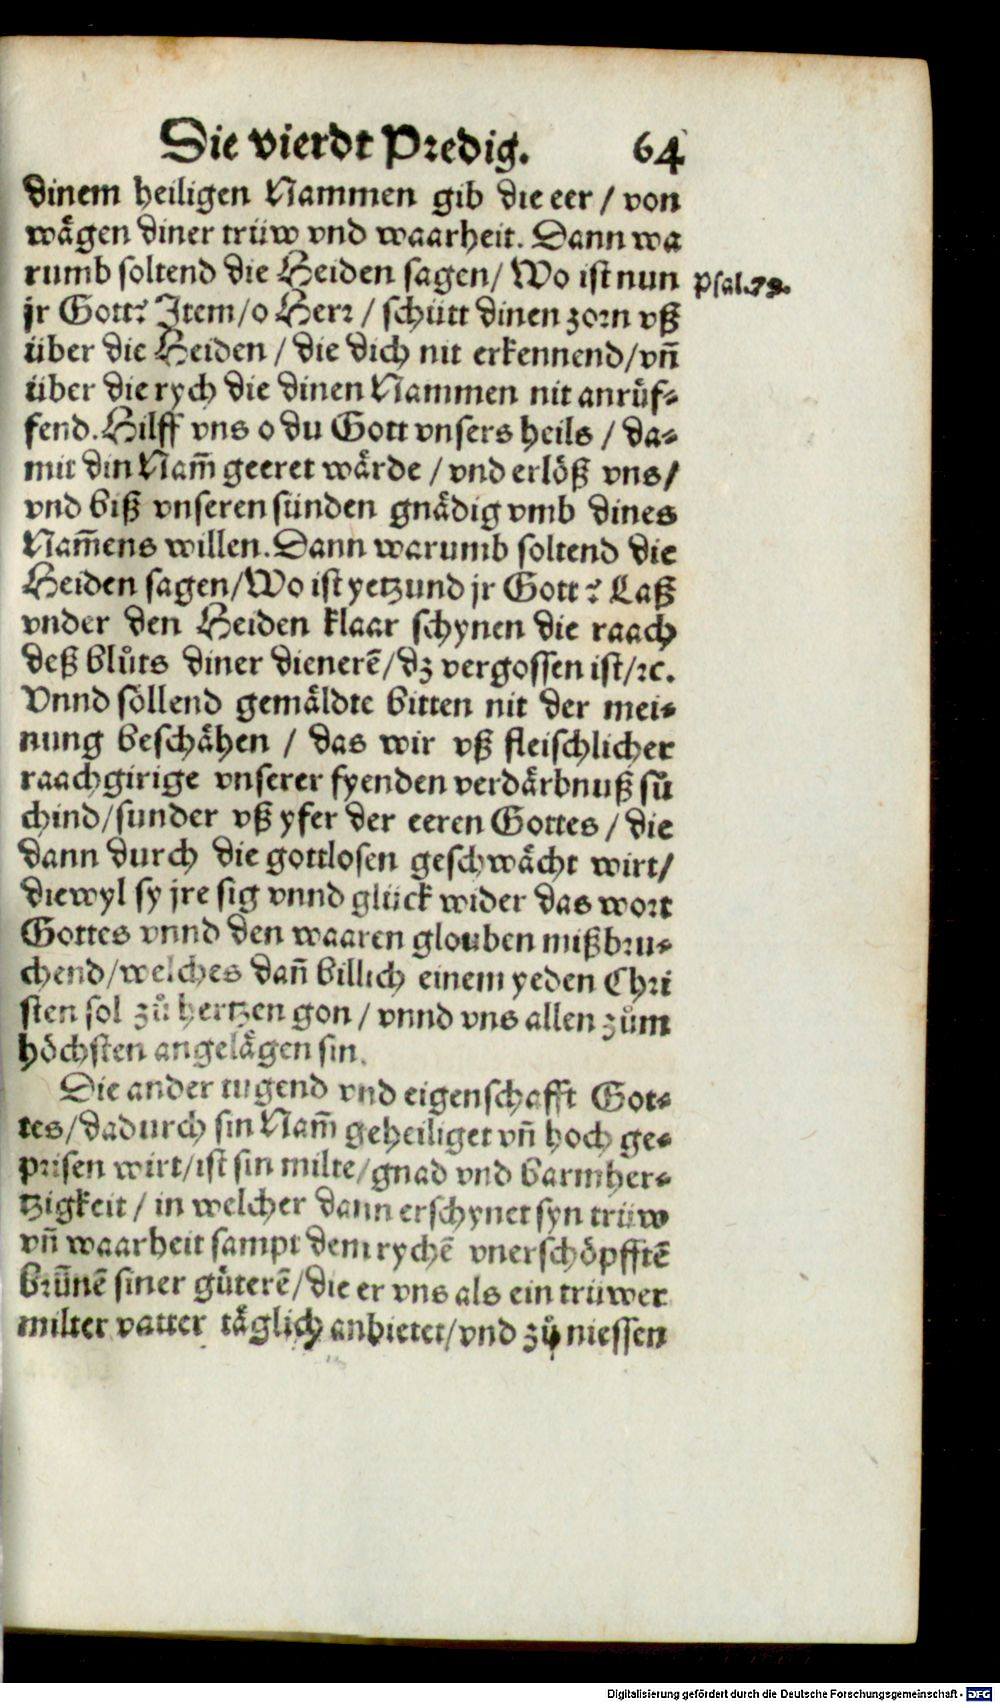 Die vierdt Predig. 64
dinem heiligen Nammen gib die eer / von
wägen diner trüw vnd waarheit. Dann wa
rumb soltend die Heiden sagen/ Wo ist nun
Psal.79.
jr Gott? Item/o Herr / schütt dinen zorn vß
über die Heiden / die dich nit erkennend/vñ
über die rych die dinen Nammen nit anrüf⸗
fend. Hilff vns o du Gott vnsers heils / da⸗
mit din Nam̃ geeret wärde / vnd erlöß vns/
vnd biß vnseren sünden gnädig vmb dines
Nam̃ens willen. Dann warumb soltend die
Heiden sagen/Wo ist yetzund jr Gott? Laß
vnder den Heiden klaar schynen die raach
deß blůts diner dienerẽ/dz vergossen ist/ꝛc.
Vnnd söllend gemäldte bitten nit der mei⸗
nung beschähen / das wir vß fleischlicher
raachgirige vnserer fyenden verdärbnuß sů
chind/sunder vß yfer der eeren Gottes / die
dann durch die gottlosen geschwächt wirt/
diewyl sy jre sig vnnd glück wider das wort
Gottes vnnd den waaren glouben mißbru⸗
chend/welches dañ billich einem yeden Chri
sten sol zů hertzen gon / vnnd vns allen zům
höchsten angelägen sin.
Die ander tugend vnd eigenschafft Got⸗
tes/dadurch sin Nam̃ geheiliget vñ hoch ge⸗
prisen wirt/ist sin milte/gnad vnd barmher⸗
tzigkeit / in welcher dann erschynet syn trüw
vñ waarheit sampt dem rychẽ vnerschöpfftẽ
brũnẽ siner güterẽ/die er vns als ein trüwer
milter vatter täglich anbietet/vnd zů niessen
Digitalisierung gefördert durch die Deutsche Forschungsgemeinschaft - DFG